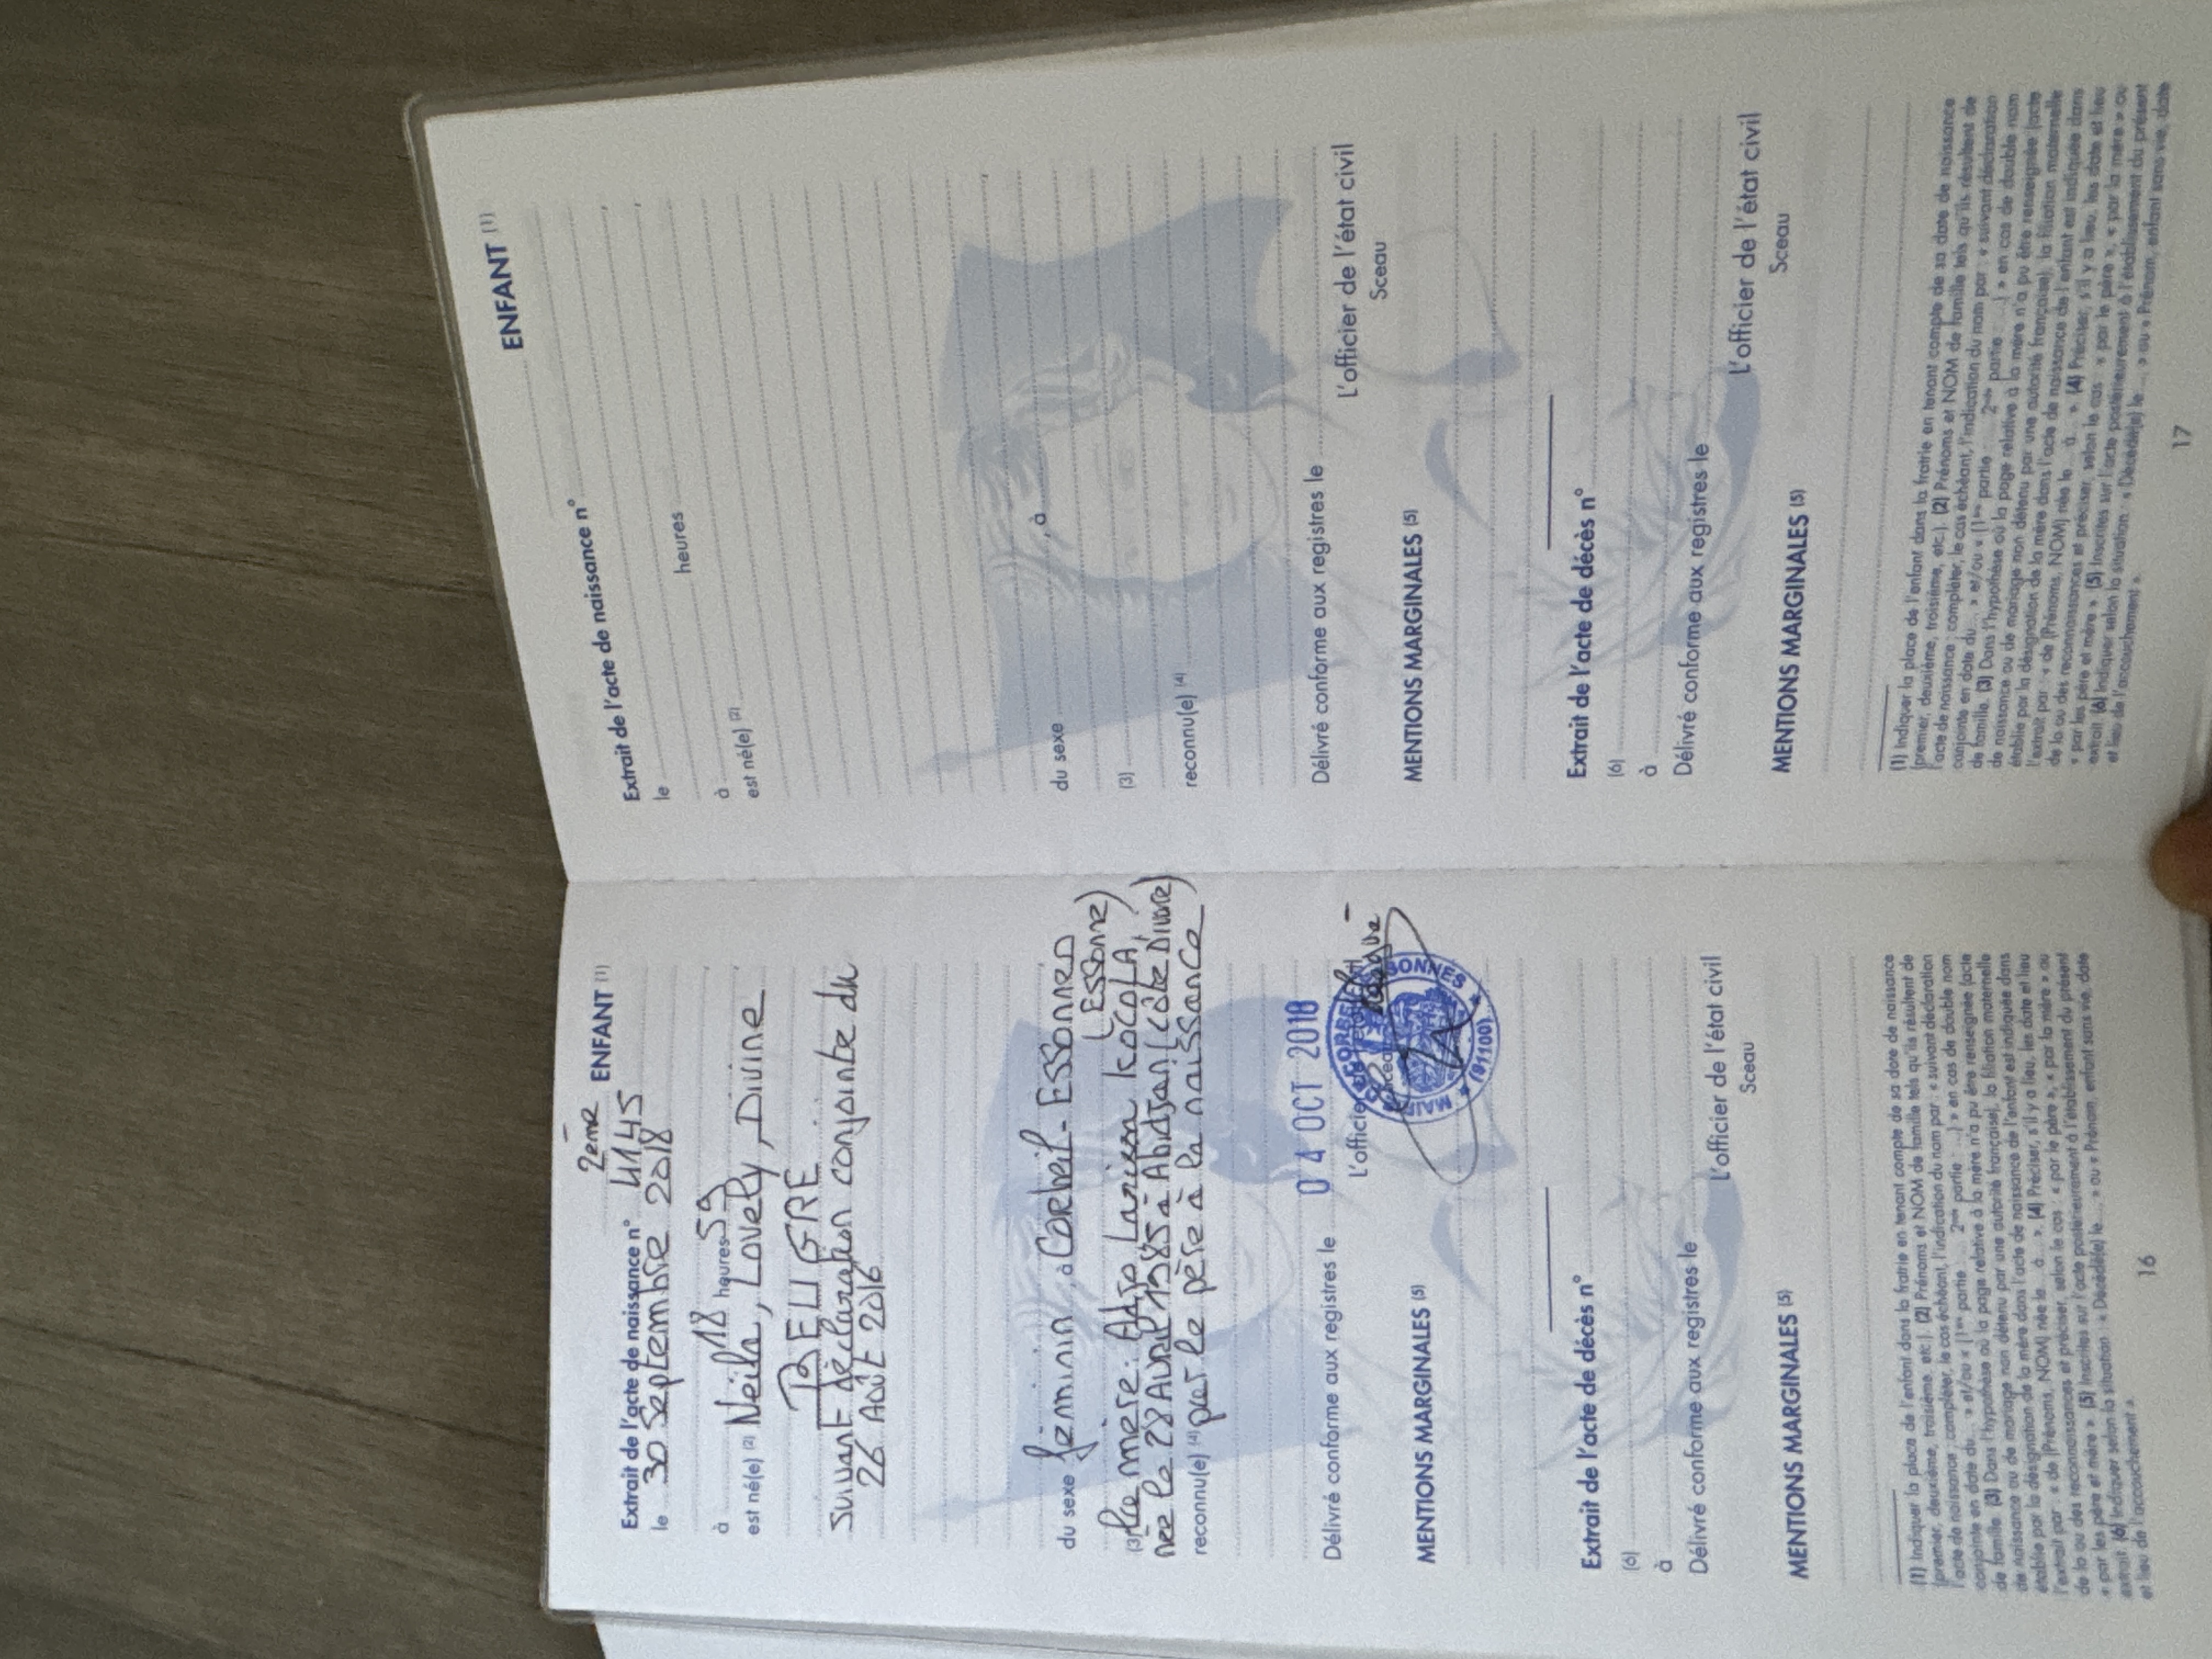 2ème ENFANT (1)
Extrait de l'acte de naissance n° 4145
le 30 Septembre 2018
à 18 heures 59
est né(e) (2) Neila, Lovely, Divine
suivant déclaration conjointe du
26 Août 2016
du sexe féminin, à Corbeil-Essonnes
(Essonne)
(3) de mère: Adjo Larissa KOCOLA,
née le 28 Avril 1985 à Abidjan (Côte D'ivoire)
reconnu(e) (4) par le père à la naissance
Délivré conforme aux registres le 04 OCT 2018
L'officier
MENTIONS MARGINALES (5)
Extrait de l'acte de décès n°
(6)
à
Délivré conforme aux registres le
L'officier de l'état civil
Sceau
MENTIONS MARGINALES (5)
(1) Indiquer la place de l'enfant dans la fratrie en tenant compte de sa date de naissance
(premier, deuxième, troisième, etc.). (2) Prénoms et NOM de famille tels qu'ils résultent de
l'acte de naissance ; compléter, le cas échéant, l'indication du nom par : « suivant déclaration
conjointe en date du... » et/ou « (1ère partie : ... 2nde partie : ...) » en cas de double nom
de famille. (3) Dans l'hypothèse où la page relative à la mère n'a pu être renseignée (acte
de naissance ou de mariage non détenu par une autorité française), la filiation maternelle
établie par la désignation de la mère dans l'acte de naissance de l'enfant est indiquée dans
l'extrait par : « de (Prénoms, NOM) née le... à... ». (4) Préciser, s'il y a lieu, les date et lieu
de la ou des reconnaissances et préciser, selon le cas : « par le père », « par la mère » ou
« par les père et mère ». (5) Inscrites sur l'acte postérieurement à l'établissement du présent
extrait. (6) Indiquer selon la situation : « Décédé(e) le... » ou « Prénom, enfant sans vie, date
et lieu de l'accouchement ».
16
ENFANT (1)
Extrait de l'acte de naissance n°
le
heures
à
est né(e) (2)
du sexe , à
(3)
reconnu(e) (4)
Délivré conforme aux registres le
L'officier de l'état civil
Sceau
MENTIONS MARGINALES (5)
Extrait de l'acte de décès n°
(6)
à
Délivré conforme aux registres le
L'officier de l'état civil
Sceau
MENTIONS MARGINALES (5)
(1) Indiquer la place de l'enfant dans la fratrie en tenant compte de sa date de naissance
(premier, deuxième, troisième, etc.). (2) Prénoms et NOM de famille tels qu'ils résultent de
l'acte de naissance ; compléter, le cas échéant, l'indication du nom par : « suivant déclaration
conjointe en date du... » et/ou « (1ère partie : ... 2nde partie : ...) » en cas de double nom
de famille. (3) Dans l'hypothèse où la page relative à la mère n'a pu être renseignée (acte
de naissance ou de mariage non détenu par une autorité française), la filiation maternelle
établie par la désignation de la mère dans l'acte de naissance de l'enfant est indiquée dans
l'extrait par : « de (Prénoms, NOM) née le... à... ». (4) Préciser, s'il y a lieu, les date et lieu
de la ou des reconnaissances et préciser, selon le cas : « par le père », « par la mère » ou
« par les père et mère ». (5) Inscrites sur l'acte postérieurement à l'établissement du présent
extrait. (6) Indiquer selon la situation : « Décédé(e) le... » ou « Prénom, enfant sans vie, date
et lieu de l'accouchement ».
17